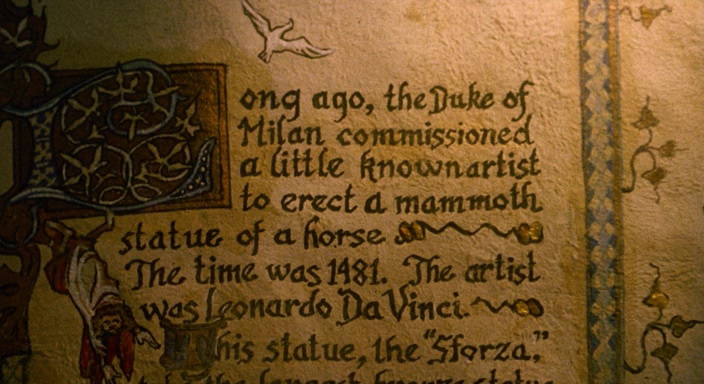 Long ago, the Duke of
Milan commissioned
a little known artist
to erect a mammoth
statue of a horse
The time was 1481. The artist
was Leonardo Da Vinci.
This statue, the "Sforza,"
the largest known statue